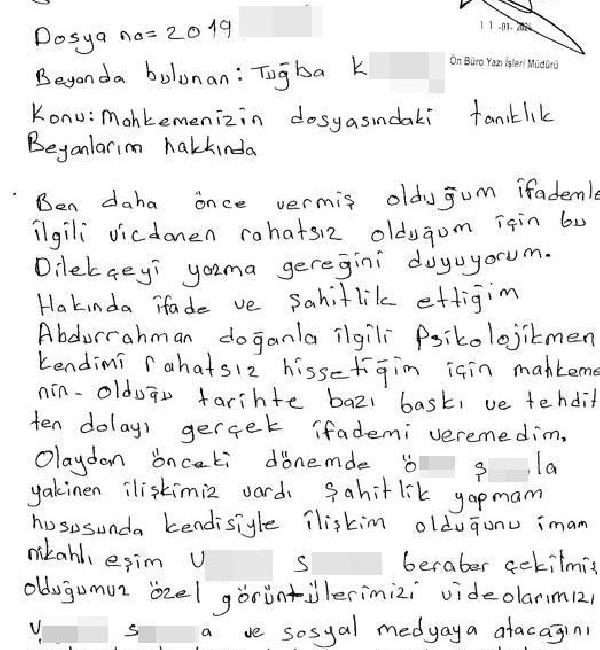 Dosya no= 2019
11-01-
Beyanda bulunan: Tuğba K
Ön Büro Yazı İşleri Müdürü
Konu: Mahkemenizin dosyasındaki tanıklık
Beyanlarım hakkında
Ben daha önce vermiş olduğum ifademle
ilgili vicdanen rahatsız olduğum için bu
Dilekçeyi yazma gereğini duyuyorum.
Hakında ifade ve şahitlik ettiğim
Abdurrahman doğanla ilgili Psikolojikmen
kendimi rahatsız hissetiğim için mahkeme
nin- olduğu tarihte bazı baskı ve tehdit
ten dolayı gerçek ifademi veremedim.
Olaydan önceki dönemde ö ş la
yakinen ilişkimiz vardı şahitlik yapmam
hususunda kendisiyle ilişkim olduğunu imam
nikahlı eşim U S beraber çekilmiş
olduğumuz özel görüntülerimizi videolarımızı
U s a ve sosyal medyaya atacağını